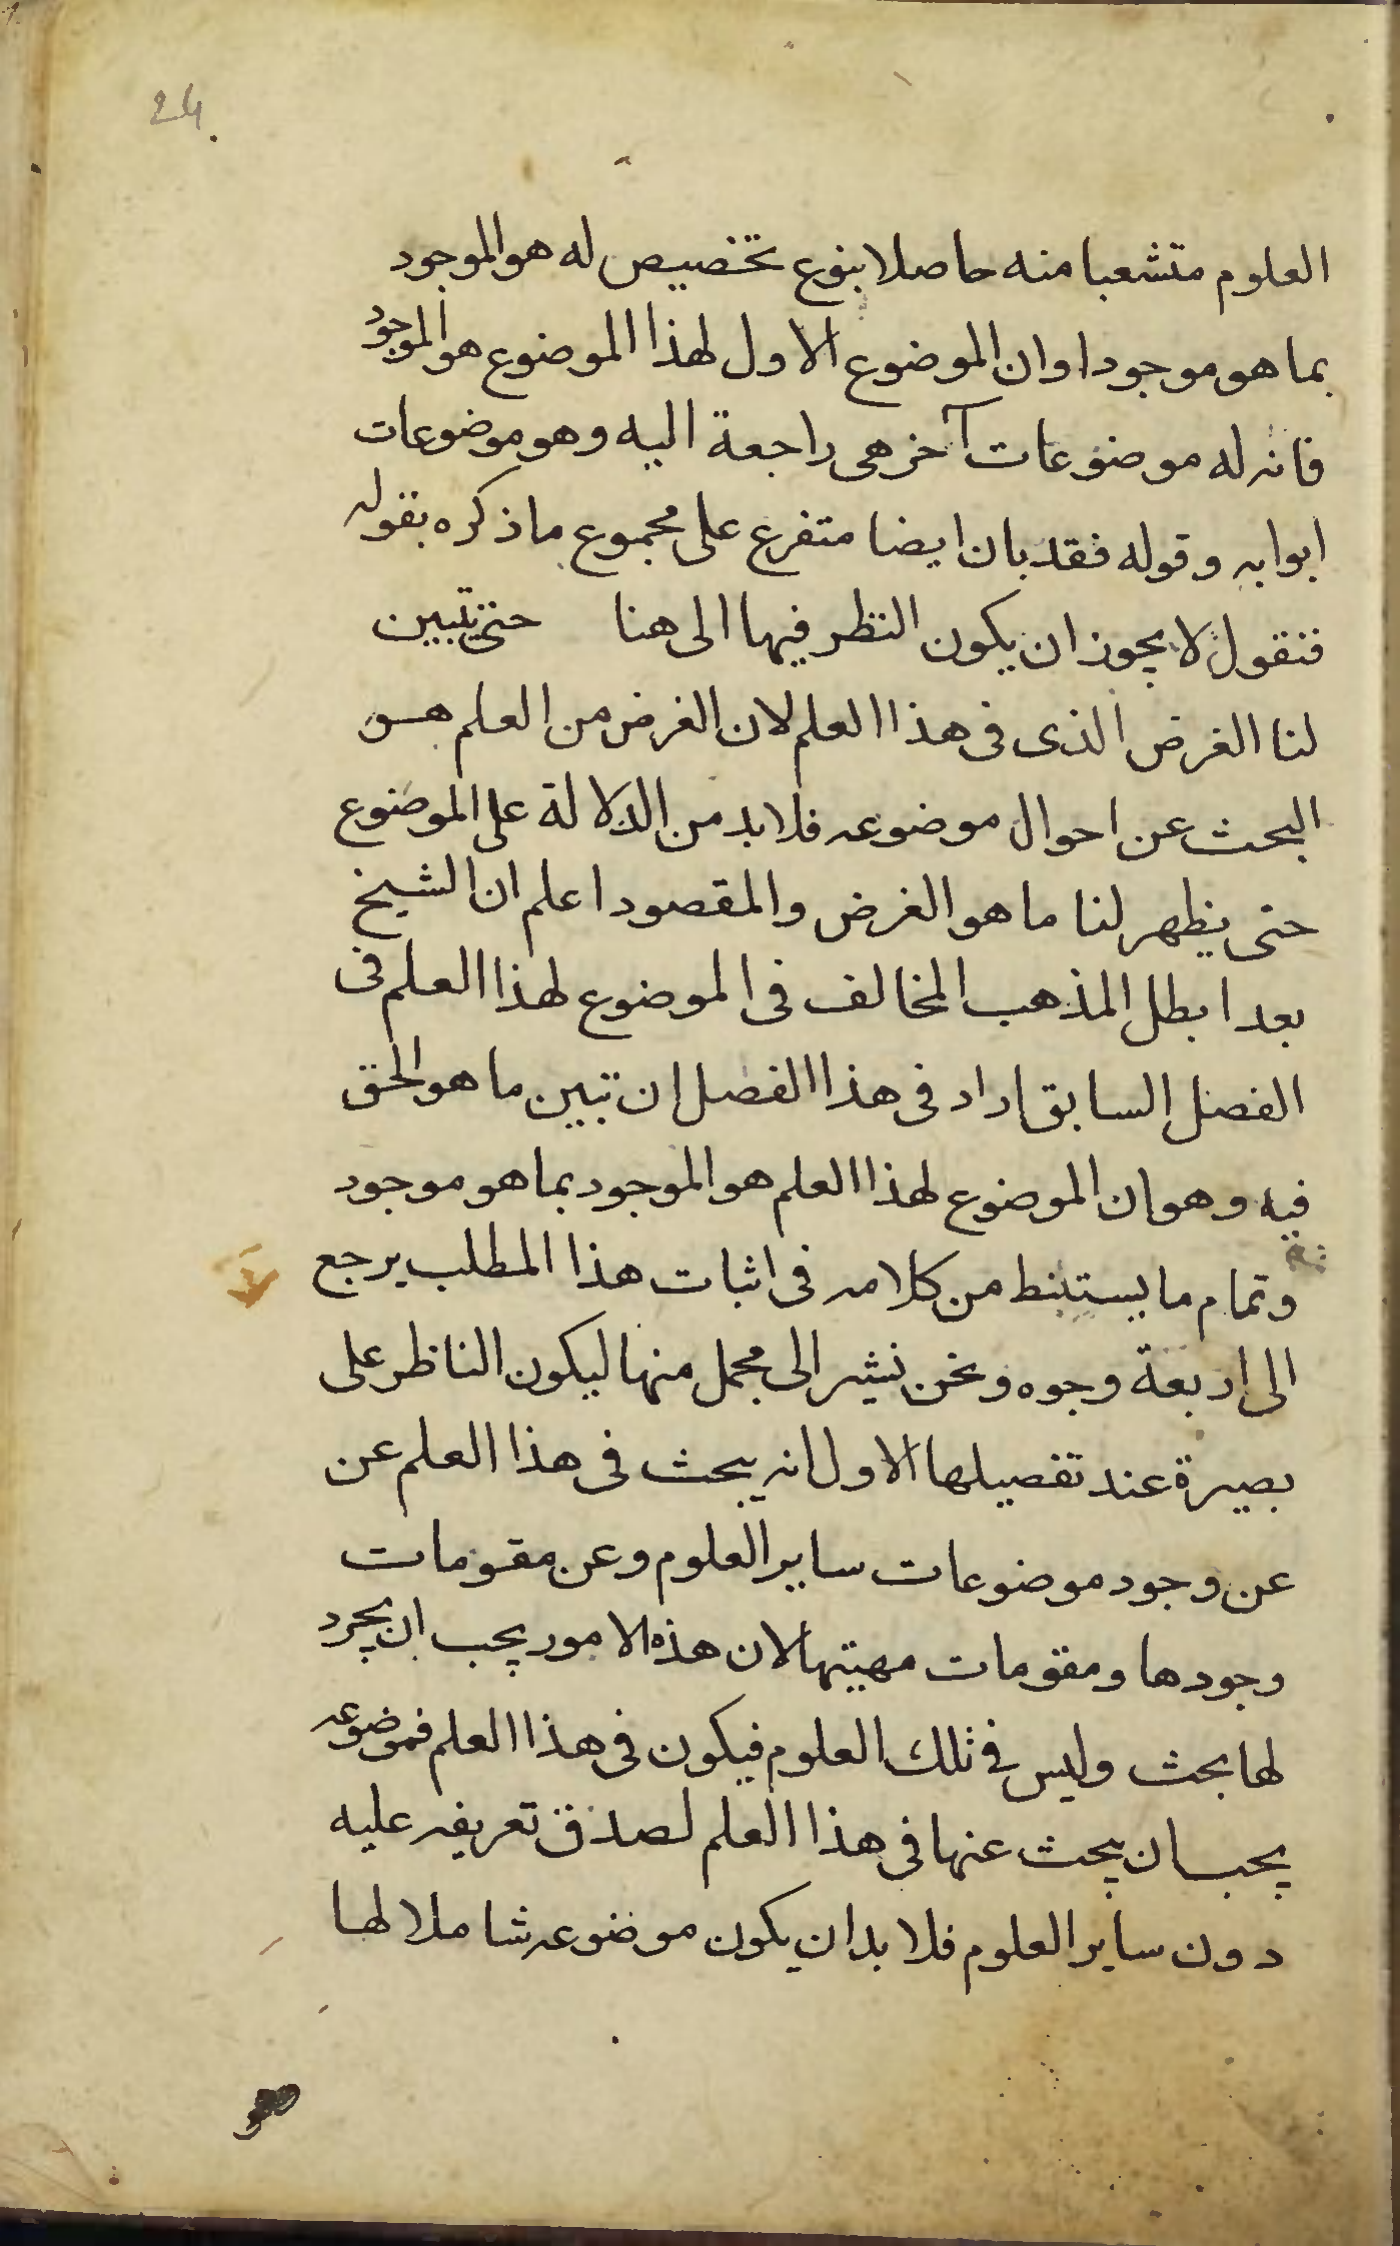 24
العلوم متشعبا منه حاصلا بنوع تخصيص له هو الموجود
بما هو موجود او ان الموضوع الاول لهذا الموضوع هو الموجود
فانه له موضوعات آخر هى راجعة اليه وهو موضوعات
ابوابه وقوله فقد بان ايضا متفرع على مجموع ما ذكره بقوله
فنقول لا يجوز ان يكون النظر فيها الى هنا حتى يتبين
لنا الغرض الذى فى هذا العلم لان الغرض من العلم هو
البحث عن احوال موضوعه فلابد من الدلالة على الموضوع
حتى يظهر لنا ما هو الغرض والمقصود اعلم ان الشيخ
بعد ابطل المذهب المخالف فى الموضوع لهذا العلم فى
الفصل السابق اراد فى هذا الفصل ان تبين ما هو الحق
فيه وهو ان الموضوع لهذا العلم هو الموجود بما هو موجود
وتمام ما يستنبط من كلامه فى اثبات هذا المطلب يرجع
الى اربعة وجوه ونحن نشير الى مجمل منها ليكون الناظر على
بصيرة عند تفصيلها الاول انه يبحث فى هذا العلم عن
عن وجود موضوعات ساير العلوم وعن مقومات
وجودها ومقومات مهيتها لان هذه الامور يجب ان يجرد
لها بحث وليس فى تلك العلوم فيكون فى هذا العلم فموضوعه
يجب ان يبحث عنها فى هذا العلم لصدق تعريفه عليه
دون ساير العلوم فلا بد ان يكون موضوعه شاملا لها